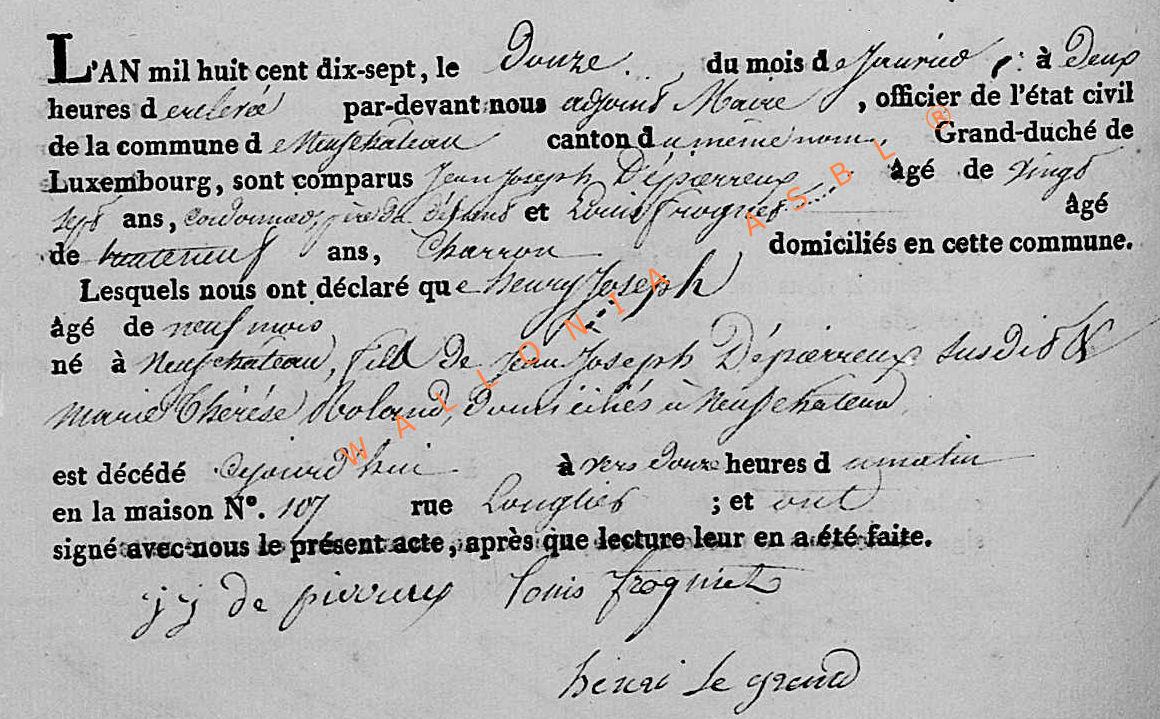 L'AN mil huit cent dix-sept, le Douze du mois de Janvier, à Deux
heures de relevée par-devant nous adjoint Maire, officier de l'état civil
de la commune de Neufchateau canton du même nom. Grand-duché de
Luxembourg, sont comparus Jean Joseph Dépierreux Agé de Vingt
Sept ans, Cordonnier, père du défunt et Louis Frognet âgé
de trente neuf ans, Charron domiciliés en cette commune.
Lesquels nous ont déclaré que henry Joseph
âgé de neuf mois
né à Neufchateau, fils de Jean Joseph Dépierreux Susdit &
Marie Thérèse Roland, domiciliés à Neufchateau,
est décédé aujourd'hui à vers douze heures du matin
en la maison N°. 107 rue Longlier ; et ont
signé avec nous le présent acte, après que lecture leur en a été faite.
j j de pierreux louis frognet
henri Le grand
WALLONIA ASBL ®